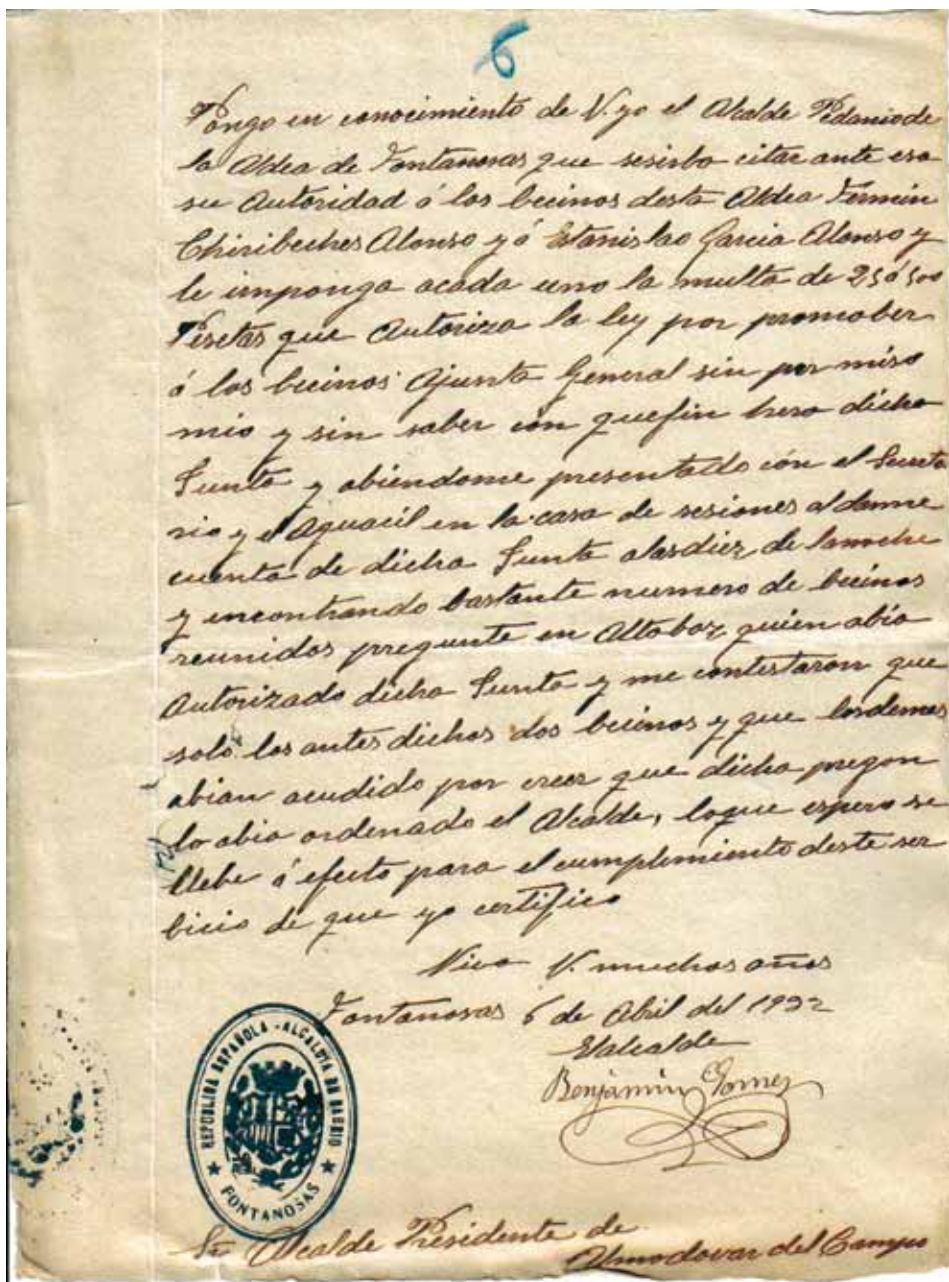 6
Pongo en conocimiento de V. yo el Alcalde Pedanio de
la Aldea de Fontanosas que sesirba citar ante esa
su Autoridad á los becinos desta Aldea Fermin
Chiribeches Alonso y á Estanislao Garcia Alonso y
le imponga acada uno la multa de 25 á 500
Pesetas que Autoriza la ley por promober
á los becinos Ajunta General sin per miso
mio y sin saber con quefin hera dicha
Junta y abiendome presentado con el Secreta
rio y el Aguacil en la casa de sesiones al darme
cuenta de dicha Junta alasdiez de lanoche
y encontrando bastante numero de becinos
reunidos pregunte en Altaboz quien abia
Autorizado dicha Junta y me contestaron que
solo los antes dichos dos becinos y que losdemas
abian acudido por creer que dicho pregon
lo abia ordenado el Alcalde, loque espero se
llebe á efecto para el cumplimiento deste ser
bicio de que yo certifico
Viva V. muchos años
Fontanosas 6 de Abril del 1932
Elalcalde
Benjamin Gomez
REPUBLICA ESPAÑOLA - ALCALDIA DE BARRIO
FONTANOSAS
Sr Alcalde Presidente de
Almodovar del Campo